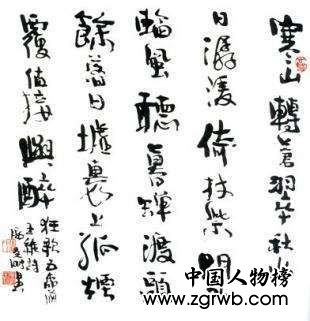 寒山轉蒼翠秋水
日潺湲倚杖柴門
臨風聽暮蟬渡頭
餘落日墟裏上孤煙
覆值接輿醉
狂歌五柳前
王維詩
中国人物榜
www.zgrwb.com